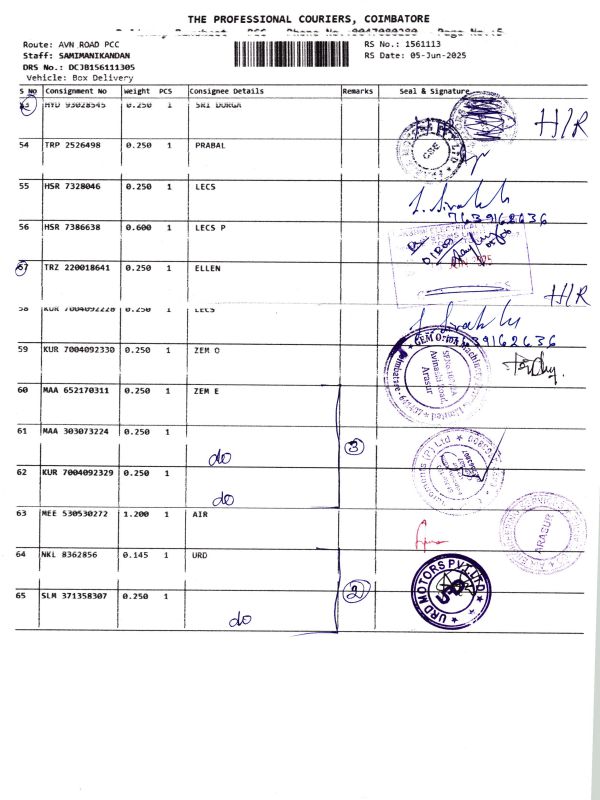 THE PROFESSIONAL COURIERS, COIMBATORE
Route: AVN ROAD PCC
RS No.: 1561113
Staff: SAMIMANIKANDAN
RS Date: 05-Jun-2025
DRS No.: DCJB156111305
Vehicle: Box Delivery
S No Consignment No Weight PCS Consignee Details Remarks Seal & Signature
HYD 93028545 0.250 1 SRI DURGA
H/R
54 TRP 2526498 0.250 1 PRABAL
CBE
55 HSR 7328046 0.250 1 LECS
7639162636
56 HSR 7386638 0.600 1 LECS P
57 TRZ 220018641 0.250 1 ELLEN
H/R
58 KUR 7004092228 0.250 1 LECS
7639162636
59 KUR 7004092330 0.250 1 ZEM O
Avinashi Road,
Arasur
60 MAA 652170311 0.250 1 ZEM E
61 MAA 303073224 0.250 1
do 3
62 KUR 7004092329 0.250 1
do
63 MEE 530530272 1.200 1 AIR
ARASUR
64 NKL 8362856 0.145 1 URD
URD MOTORS PVT LTD
URD
2
65 SLM 371358307 0.250 1
do